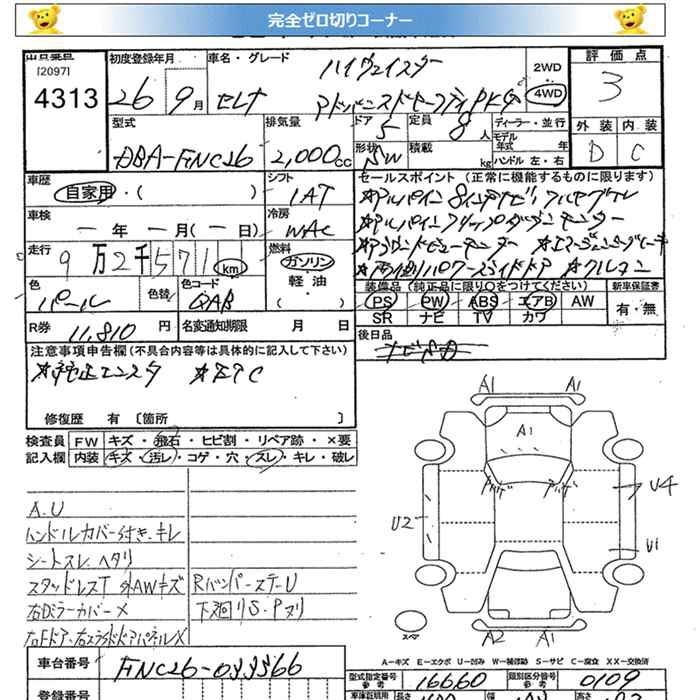 完全ゼロ切りコーナー
出品票
[2097]
4313
初度登録年月
26年9月
車名・グレード
ハイウェイスター
セレナ アドバンスドセーフティPKG
2WD
4WD
評価点
3
外装 内装
D C
型式
DBA-FNC26
排気量
2,000cc
ドア
5
定員
8人
形状
SW
積載
kg
ディーラー・並行
モデル年式 年
ハンドル 左・右
車歴
自家用・( )
シフト
IAT
車検
ー年ー月(ー日)
冷房
WAC
走行
9万2千571km
燃料
ガソリン
軽・油
( )
色
パール
色替
色コード
QAB
R券 11,810円
名変通知期限 月 日
セールスポイント (正常に機能するものに限ります)
★アルパイン8インチナビ/フルセグTV
★アルパインフリップダウンモニター
★アラウンドビューモニター ★エマージェンシーブレーキ
★両側パワースライドドア ★クルコン
装備品 (純正品に限り○をつけてください)
PS PW ABS エアB AW
SR ナビ TV カワ
新車保証書
有・無
後日品
注意事項申告欄(不具合内容等は具体的に記入して下さい)
★純正エンスタ ★ETC
修復歴 有 〔箇所 〕
検査員記入欄
FW キズ・飛石・ヒビ割・リペア跡・×要
内装 キズ・汚レ・コゲ・穴・スレ・キレ・破レ
A.U
ハンドルカバー付き.キレ
シートスレ.ヘタリ
スタッドレスT 外AWキズ
右Dミラーカバー×
右Fドア、右スライドドアパネルX
RバンパーステーU
下廻りS・Pヌリ
A1 A1
A1
U2
U4
U1
A2 A1
スペア
A-キズ E-エクボ U-凹み W-補修跡 S-サビ C-腐食 XX-交換済
車台番号
FNC26-033366
型式指定番号
参考
16660
類別区分番号
参考
0109
登録番号